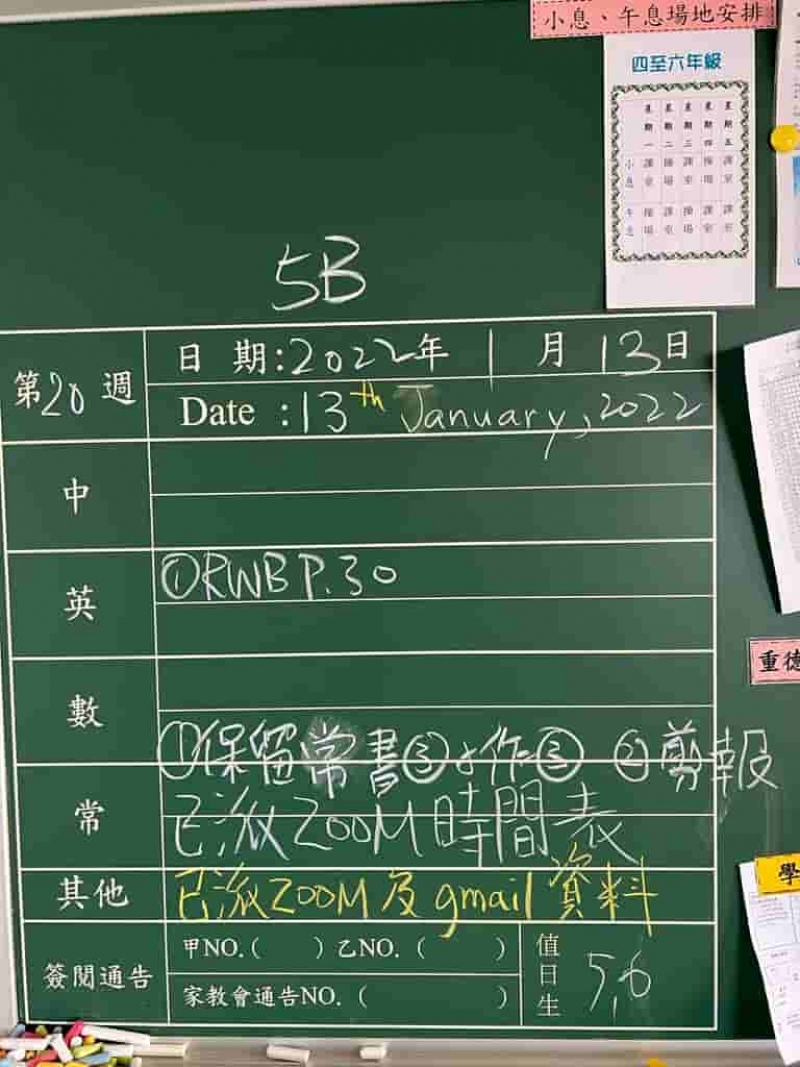 小息、午息場地安排
四至六年級
星期一 星期二 星期三 星期四 星期五
小息 課室 操場 課室 操場 課室
午息 操場 課室 操場 課室 課室
5B
第20週
日期:2022年1月13日
Date :13th January, 2022
中
英
①RWB P.30
數
①保留常書③+作③ ②剪報
常
已派ZOOM時間表
其他
已派ZOOM及gmail資料
簽閱通告
甲NO.( )乙NO.( )
家教會通告NO.( )
值日生
5,6
重德
學